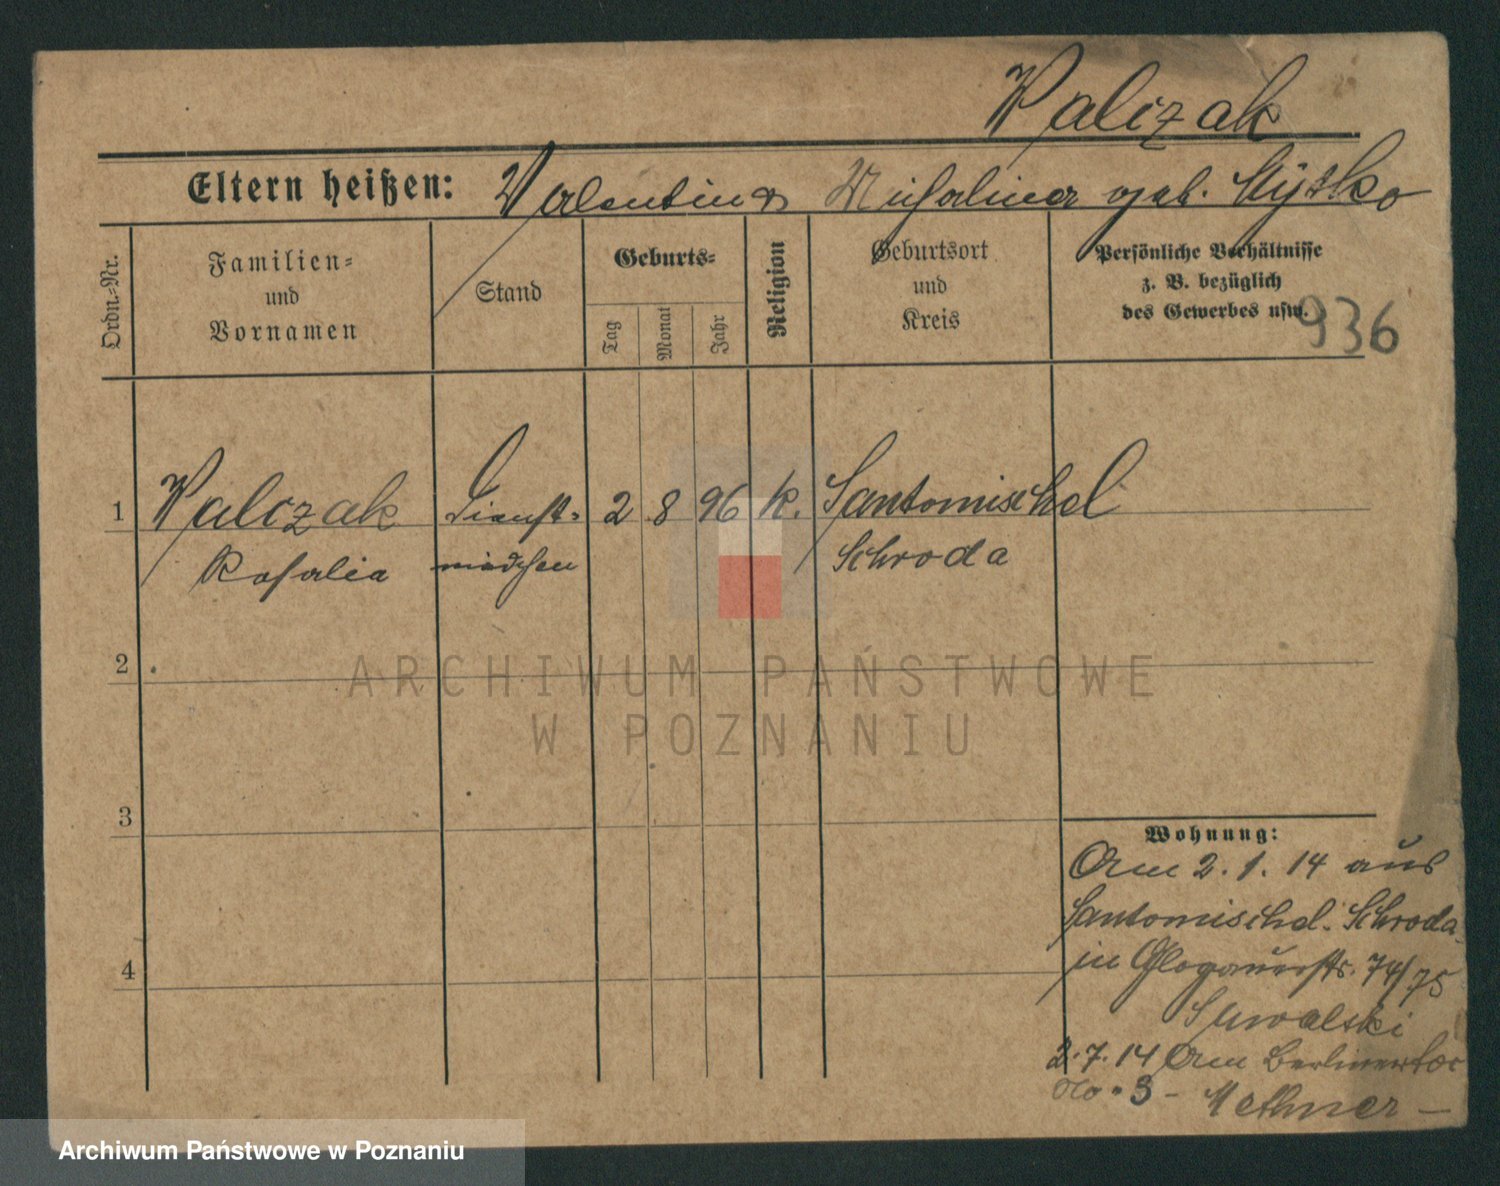 Walczak
Eltern heißen: Valentin & Michalina geb. Nysko
Ordn.-Nr.
Familien-
und
Vornamen
Stand
Geburts-
Tag
Monat
Jahr
Religion
Geburtsort
und
Kreis
Persönliche Verhältnisse
z. B. bezüglich
des Gewerbes usw.
936
1 Walczak Dienst- 2 8 96 k. Santomischel
Rosalia mädchen Schroda
2
ARCHIWUM PAŃSTWOWE
W POZNANIU
3
Wohnung:
Am 2.1.14 aus
Santomischel. Schroda
in Glogauerstr. 74/75
4
Suwalski
2.7.14 Am Berlinertor
No. 3 -
Archiwum Państwowe w Poznaniu